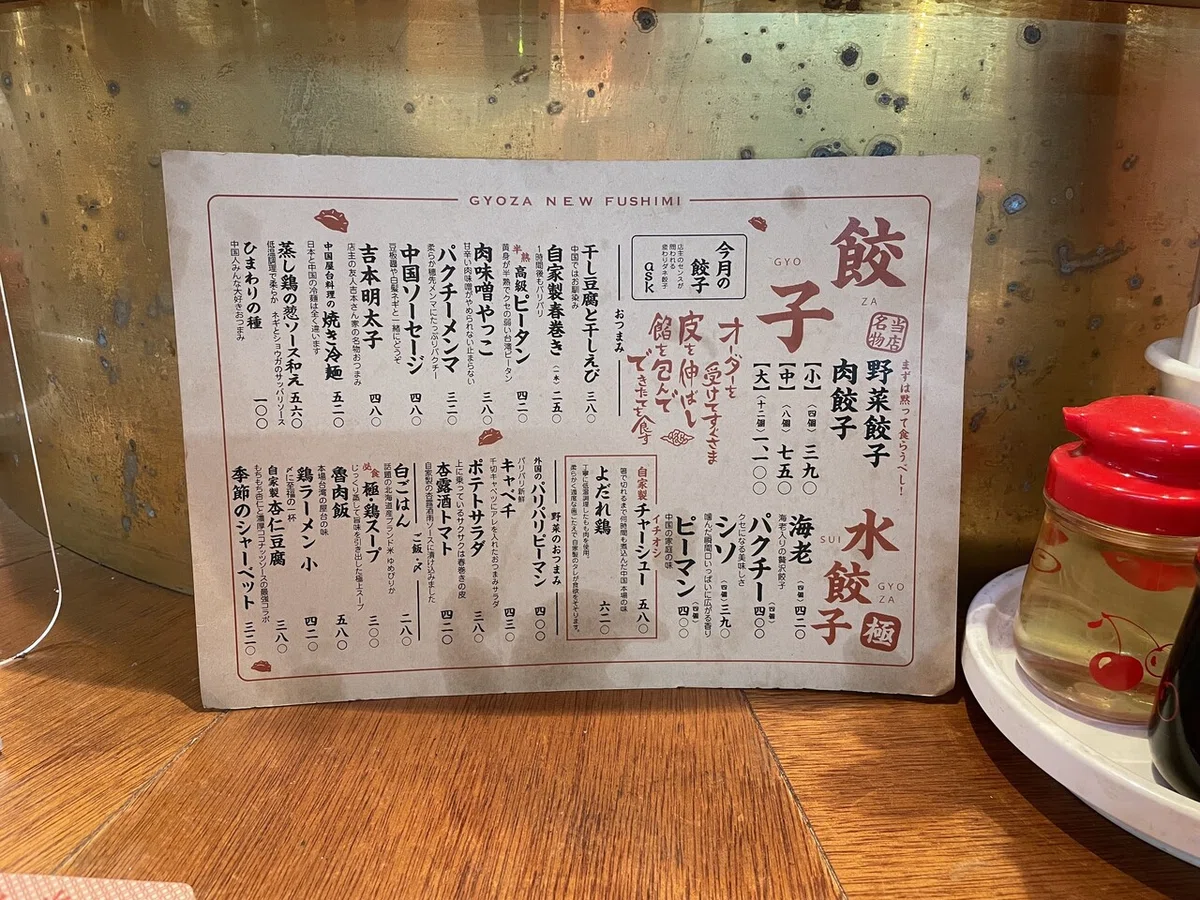 GYOZA NEW FUSHIMI
餃子
GYO
ZA
当店名物
まずは黙って食らうべし!
野菜餃子
肉餃子
【小】(四個)三九〇
【中】(八個)七五〇
【大】(十二個)一、一〇〇
水餃子
SUI
GYO
ZA
極
海老 (四個)四二〇
海老入りの贅沢餃子
パクチー (四個)四〇〇
クセになる美味しさ
シソ (四個)三九〇
噛んだ瞬間口いっぱいに広がる香り
ピーマン (四個)四〇〇
中国の家庭の味
今月の餃子
店主のセンスが
問われる
変わりダネ餃子
ask
オーダーを
受けてすぐさま
皮を伸ばし
餡を包んで
できたてを食す
イチオシ
自家製チャーシュー 五八〇
箸で切れるまで何時間も煮込んだ中国本場の味
よだれ鶏 六二〇
丁寧に低温調理したもも肉を使用。
おつまみ
干し豆腐と干しえび 三八〇
中国ではお馴染み
自家製春巻き(一本)二五〇
1時間後もパリパリ
半熟 高級ピータン 四二〇
黄身が半熟でクセの弱い台湾ピータン
肉味噌やっこ 三八〇
甘辛い肉味噌がやめられない止まらない
パクチーメンマ 三二〇
柔らか穂先メンマにたっぷりパクチー
中国ソーセージ 四八〇
豆板醤や白髪ネギと一緒にどうぞ
吉本明太子 四八〇
店主の友人吉本さん家の名物おつまみ
中国屋台料理の焼き冷麺 五二〇
日本と中国の冷麺は全く違います
蒸し鶏の葱ソース和え 五六〇
低温調理で柔らか ネギとショウガのサッパリソース
ひまわりの種 一〇〇
中国人みんな大好きおつまみ
野菜のおつまみ
外国のパリパリピーマン 四〇〇
パリパリ新鮮
キャベチ 四三〇
千切キャベツにアレを入れたおつまみサラダ
ポテトサラダ 三八〇
上に乗っているサクサクは春巻きの皮
杏露酒トマト 四二〇
自家製の杏露酒ソースに漬け込みました
ご飯・〆
白ごはん 二八〇
話題の北海道産ブランド米 ゆめぴりか
必食 極・鶏スープ 三〇〇
じっくり蒸して旨味を引き出した極上スープ
魯肉飯 五八〇
本場台湾の屋台の味
鶏ラーメン 小 四二〇
〆に至福の一杯
自家製杏仁豆腐 三八〇
もちもち杏仁と濃厚ココナッツソースの最強コラボ
季節のシャーベット 三二〇